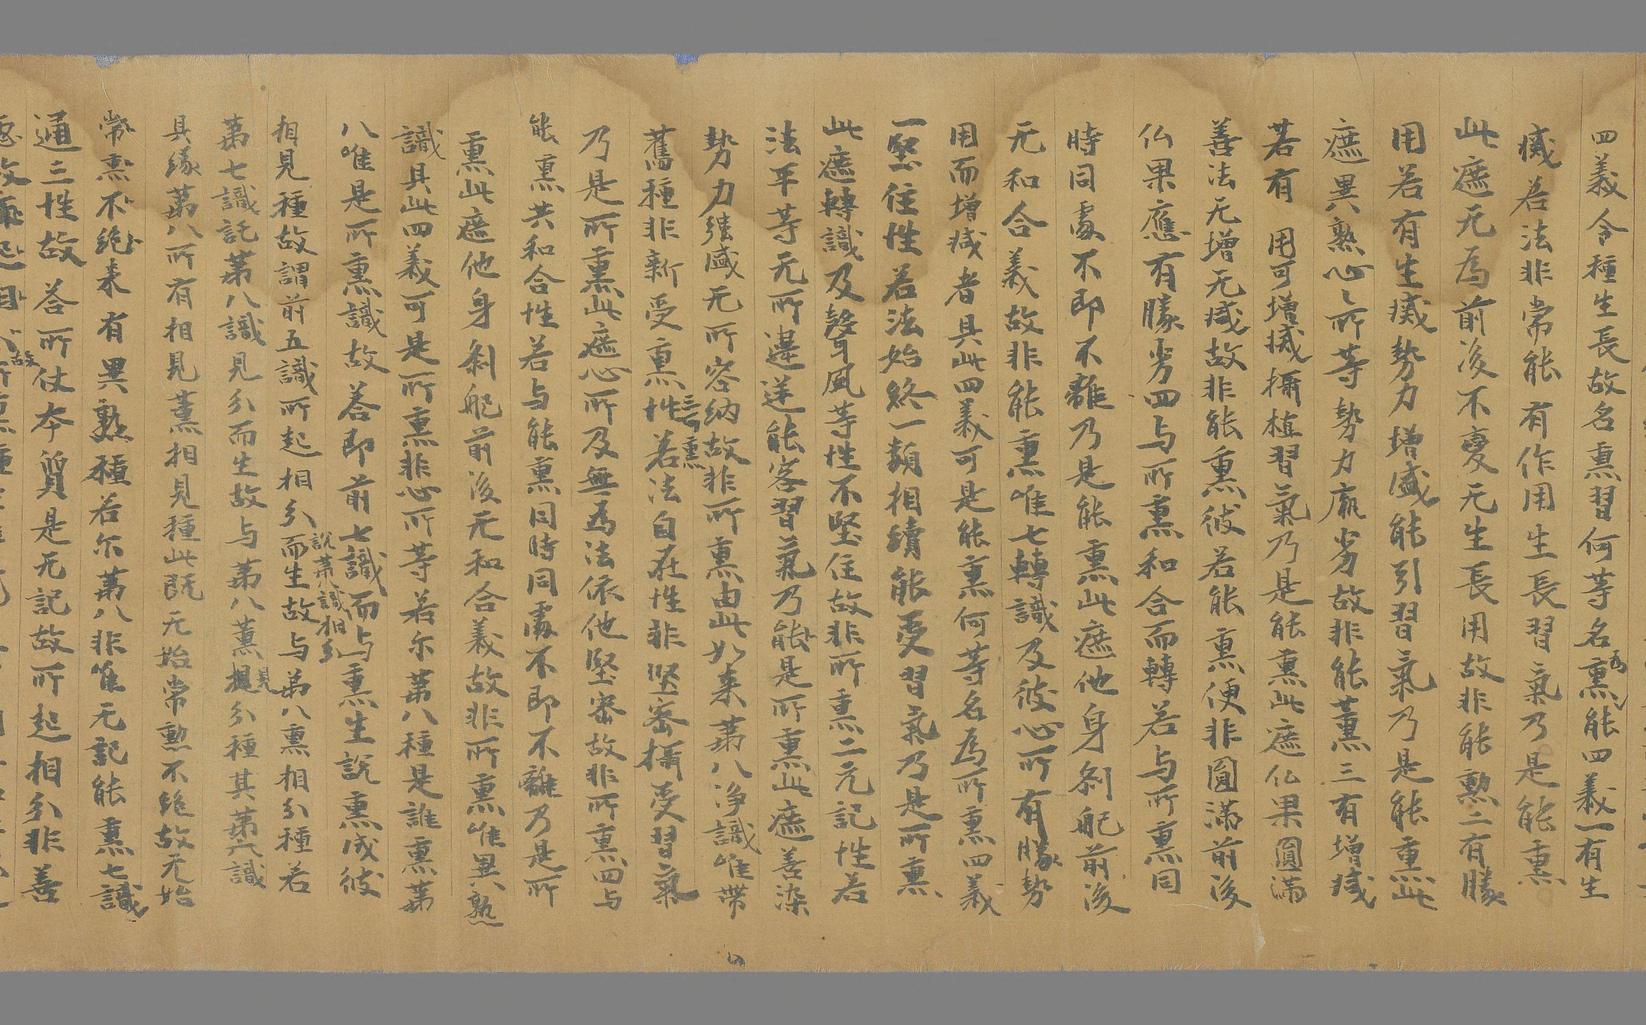 四義令種生長故名熏習何等名爲熏能四義一有生
滅若法非常能有作用生長習氣乃是能熏
此遮无爲前後不變无生長用故非能勲二有勝
用若有生滅勢力增盛能引習氣乃是能熏此
遮異熟心心所等勢力羸劣故非能薰三有增減
若有用可增減攝植習氣乃是能熏此遮仏果圓滿
善法无增无減故非能熏彼若能熏便非圓滿前後
仏果應有勝劣四与所熏和合而轉若与所熏同
時同處不即不離乃是能熏此遮他身剎那前後
无和合義故非能熏唯七轉識及彼心所有勝勢
用而增減者具此四義可是能熏何等名爲所熏四義
一堅住性若法始終一類相續能受習氣乃是所熏
此遮轉識及聲風等性不堅住故非所熏二无記性若
法平等无所違逆能容習氣乃能是所熏此遮善染
勢力強盛无所容納故非所熏由此如來第八淨識唯帶
舊種非新受熏三可熏性若法自在性非堅密攝受習氣
乃是所熏此遮心所及無爲法依他堅密故非所熏四与
能熏共和合性若与能熏同時同處不即不離乃是所
熏此遮他身剎那前後无和合義故非所熏唯異熟
識具此四義可是所熏非心所等若尔第八種是誰熏第
八唯是所熏識故荅即前七識而与熏生說熏成彼
說第八識相分
相見種故謂前五識所起相分而生故与第八熏相分種若
第七識託第八識見分而生故与第八薰見分種其第六識
具緣第八所有相見薰相見種此既无始常勲不絕故无始
常熏不絕來有異熟種若尔第八非唯无記能熏七識
通三性故荅所仗本質是无記故所起相分非善